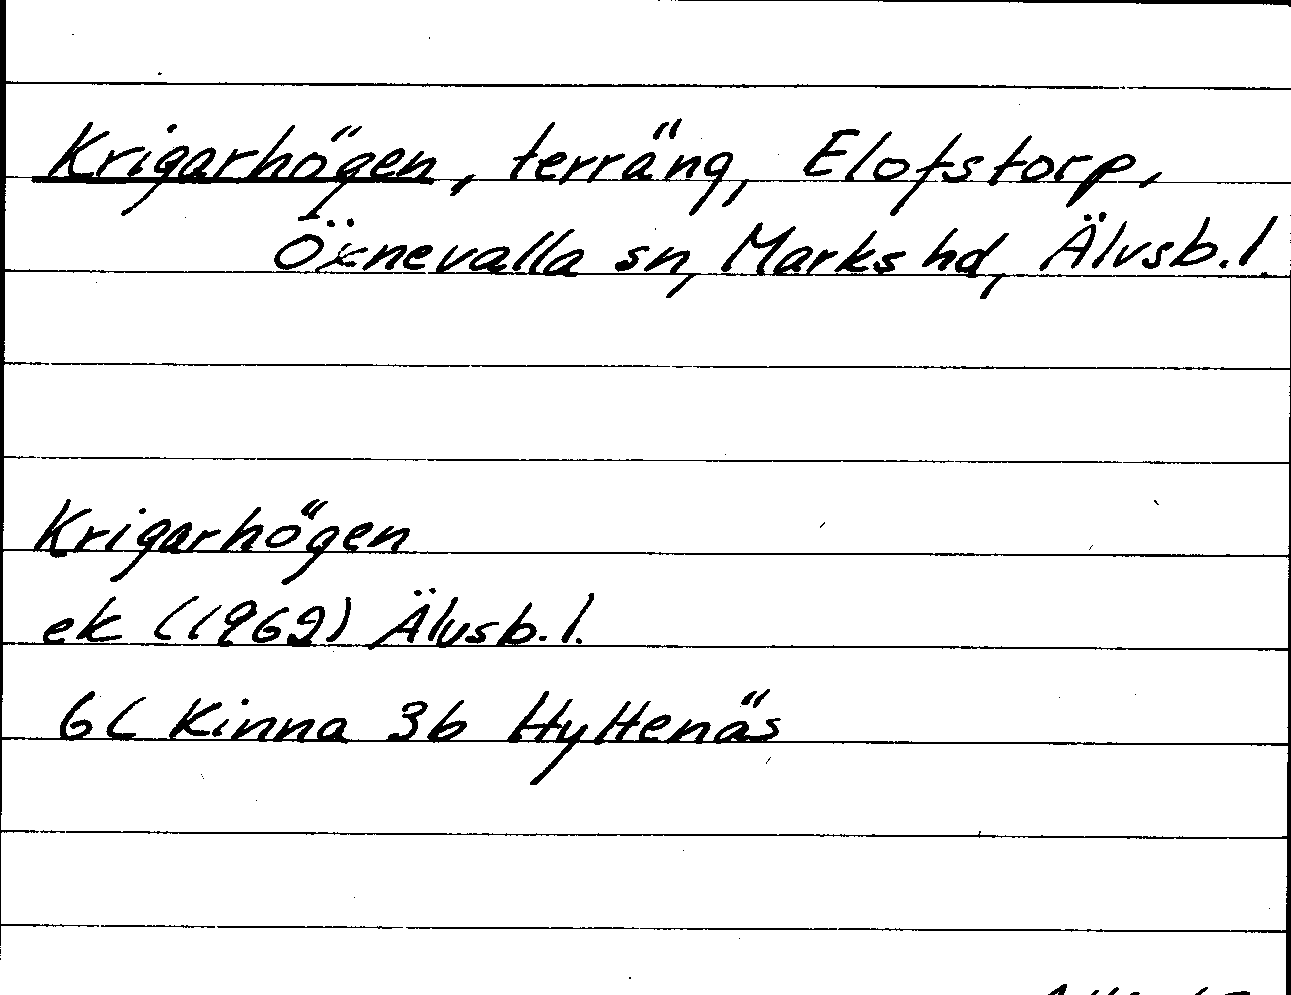 Krigarhögen, terräng, Elofstorp,
Öxnevalla sn, Marks hd, Älvsb. l.
Krigarhögen
ek (1969) Älvsb. l.
6C Kinna 3b Hyltenäs